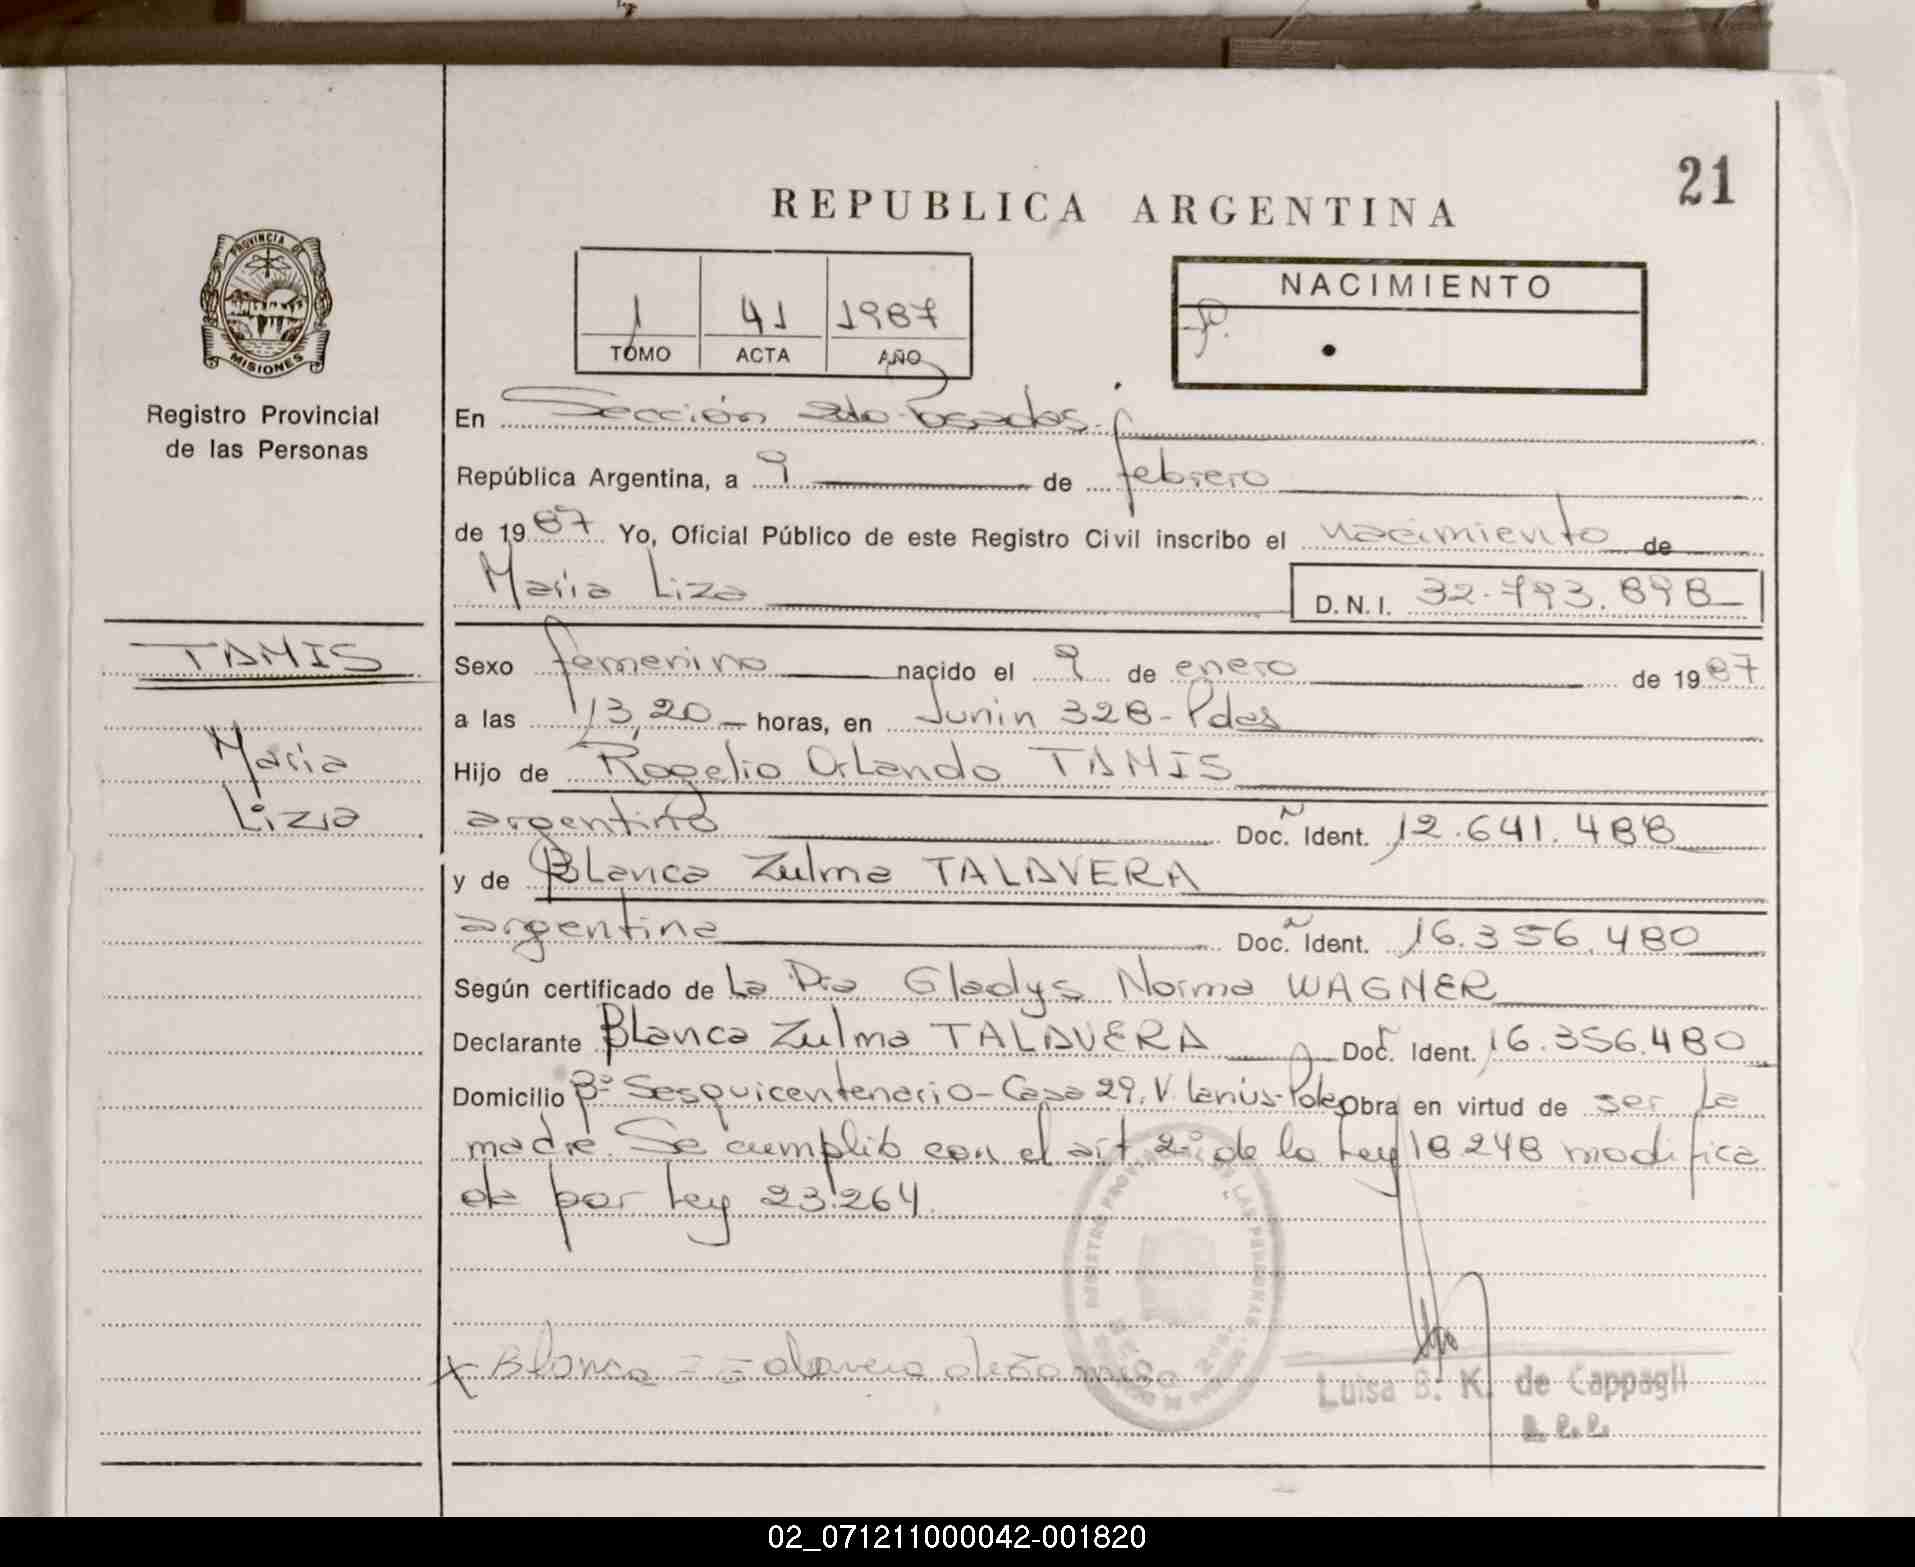 21
REPUBLICA ARGENTINA
PROVINCIA DE
MISIONES
Registro Provincial
de las Personas
1 41 1987
TOMO ACTA AÑO
NACIMIENTO
En Sección 2da Posadas.
República Argentina, a 9 de febrero
de 1987 Yo, Oficial Público de este Registro Civil inscribo el nacimiento de
Maria Liza D.N.I. 32.793.898
TAMIS
Maria
Liza
Sexo femenino nacido el 9 de enero de 1987
a las 13,20 horas, en Junin 328 - Pdas
Hijo de Rogelio Orlando TAMIS
argentino Doc. Ident. 12.641.488
y de Blanca Zulma TALAVERA
argentina Doc. Ident. 16.356.480
Según certificado de La Dra Gladys Norma WAGNER
Declarante Blanca Zulma TALAVERA Doc. Ident. 16.356.480
Domicilio Bº Sesquicentenario - Casa 29, V. Lanús - Pdas Obra en virtud de ser La
madre. Se cumplió con el art. 2º de la Ley 18248 modifica
da por Ley 23.264.
x Blanca Z
Luisa B. K. de Cappagli
02_071211000042-001820